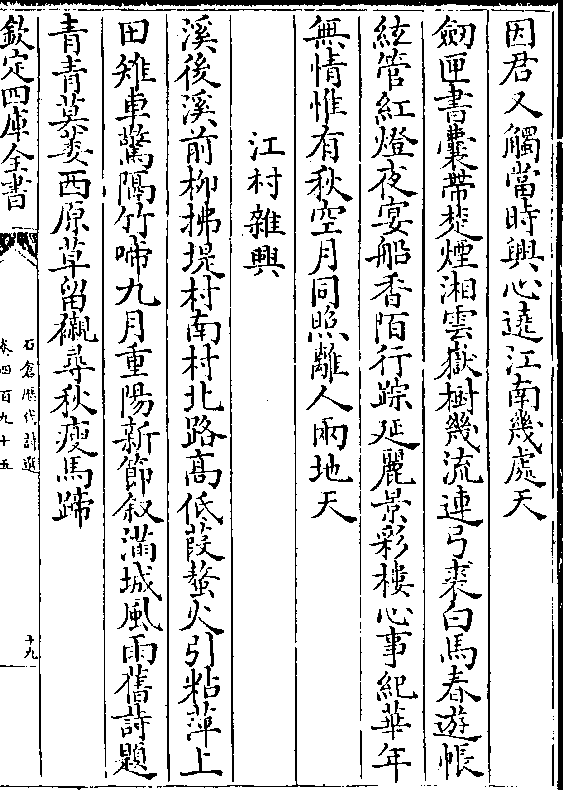 因君又觸當時興心遶江南幾處天
劒匣書囊帶楚煙湘雲嶽樹幾流連弓裘白馬春遊帳
絃管紅燈夜宴船香陌行踪延麗景彩樓心事紀華年
無情惟有秋空月同照離人兩地天
江村雜興
溪後溪前柳拂堤村南村北路髙低葭螯火引粘萍上
田雉車驚隔竹啼九月重陽新節叙滿城風雨舊詩題
青青莫芟西原草留襯尋秋瘦馬蹄
欽定四庫全書
石倉歷代詩選
卷四百九十五
十九